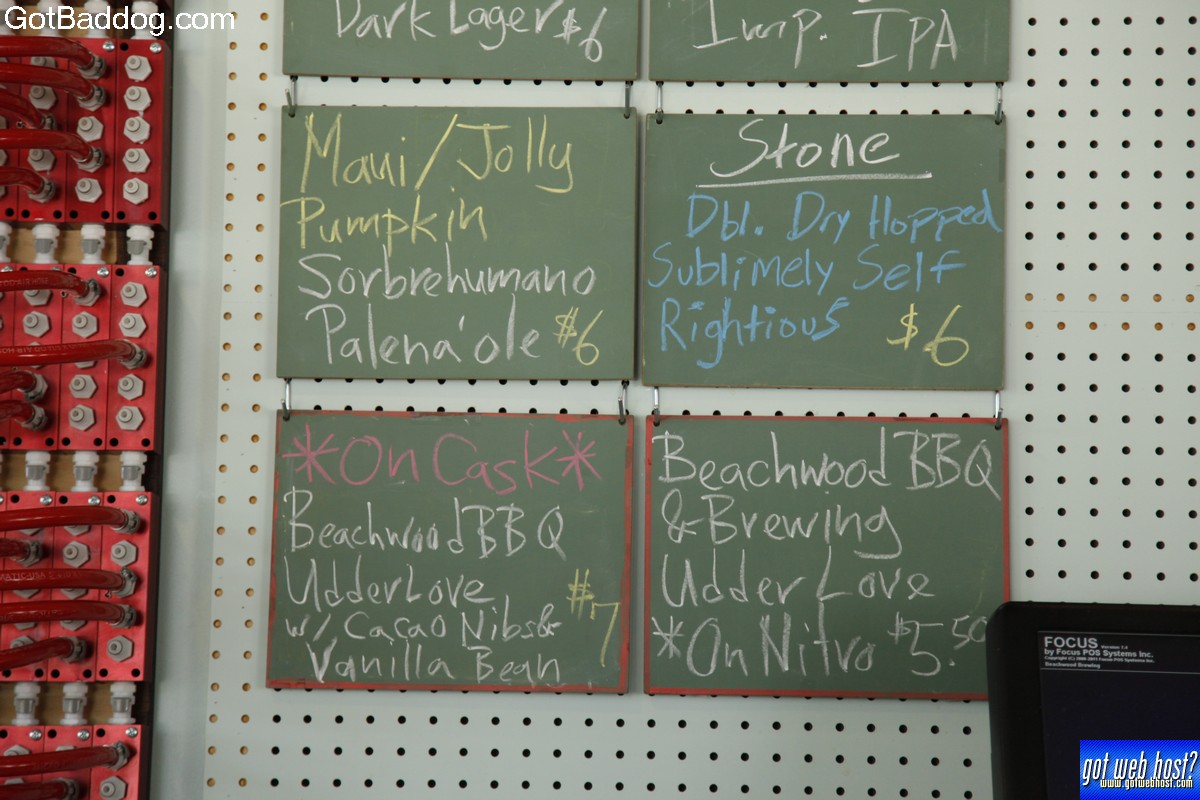 GotBaddog.com
Dark Lager $6
Imp. IPA
Maui/Jolly
Pumpkin
Sorbrehumano
Palena'ole $6
Stone
Dbl. Dry Hopped
Sublimely Self
Rightious $6
*On Cask*
Beachwood BBQ
Udder Love
w/ Cacao Nibs &
Vanilla Bean $7
Beachwood BBQ
& Brewing
Udder Love
*On Nitro $5.50
FOCUS Version 7.4
by Focus POS Systems Inc.
Copyright (C) 2000-2011 Focus POS Systems Inc.
Beachwood Brewing
got web host?
www.gotwebhost.com